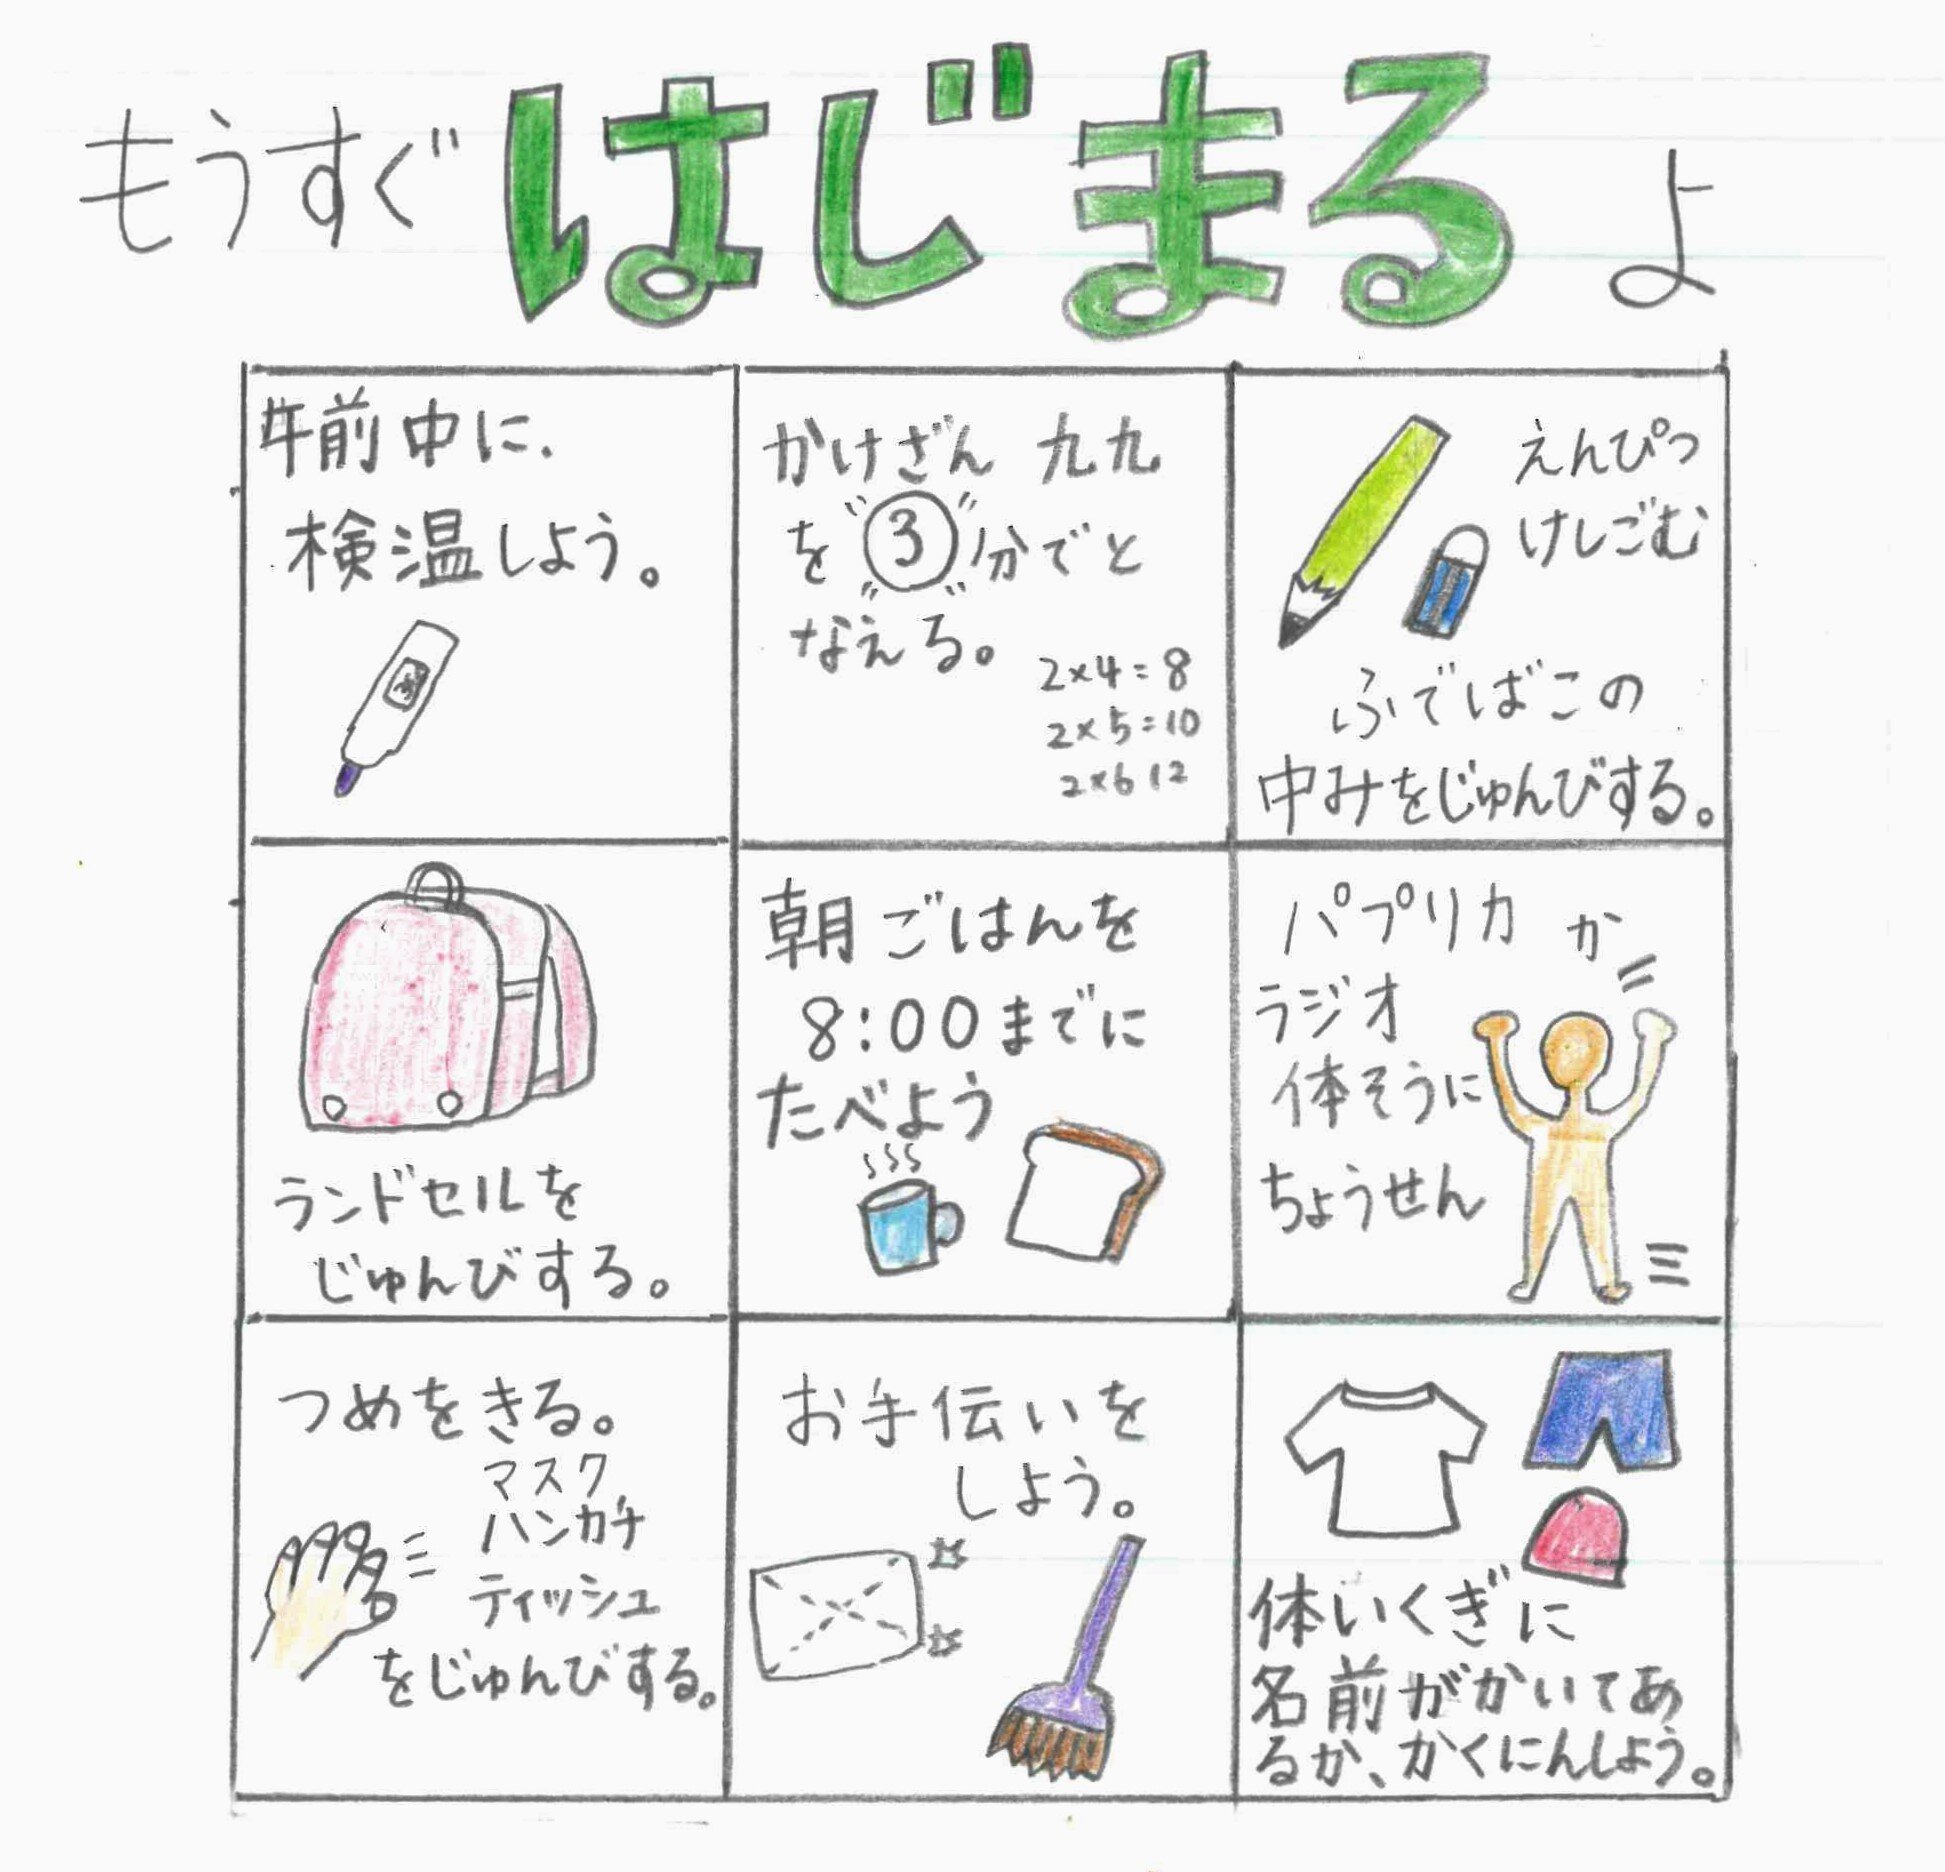 もうすぐはじまるよ
午前中に、
検温しよう。
かけざん 九九
を③分でと
なえる。
2×4=8
2×5=10
2×6 12
えんぴつ
けしごむ
ふでばこの
中みをじゅんびする。
ランドセルを
じゅんびする。
朝ごはんを
8:00までに
たべよう
パプリカ か
ラジオ
体そうに
ちょうせん
つめをきる。
マスク
ハンカチ
ティッシュ
をじゅんびする。
お手伝いを
しよう。
体いくぎに
名前がかいてあ
るか、かくにんしよう。